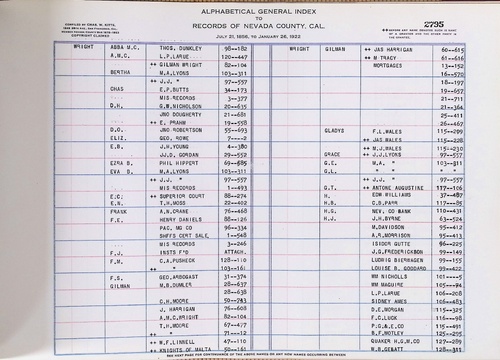 ALPHABETICAL GENERAL INDEX
TO
RECORDS OF NEVADA COUNTY, CAL.
JULY 21, 1856, TO JANUARY 26, 1922
2795
WRIGHT ABBA M.C. THOS. DUNKLEY 98—182
A.M.C. L.P. LARUE 120—447
++ GILMAN WRIGHT 82—104
BERTHA M.A. LYONS 103—311
++ J.J. " 97—557
CHAS E.P. BUTTS 34—173
MIS RECORDS 3—377
D.H. G.W. NICHOLSON 20—635
JNO DOUGHERTY 21—681
++ E. PRAHN 19—558
D.O. JNO. ROBERTSON 55—693
ELIZ. GEO. ROWE 7——2
E.B. J.H. YOUNG 4—380
JJ.D. GORDAN 29—552
EZRA B. PHIL HIPPERT 69—585
EVA B. M.A. LYONS 103—311
++ J.J. " 97—557
MIS RECORDS 1—493
E.C. ++ SUPERIOR COURT 88—274
E.N. T.H. MOSS 22—402
FRANK A.N. CRANE 76—468
F.E. HENRY DANIELS 88—126
PAC. MG CO 96—334
SHFFS CERT SALE 1—548
MIS RECORDS 3—246
F.J. INSTS F'D ATTACH.
F.M. C.A. PUSHECK 128—110
++ " 103—161
F.S. GEO. ARDOGAST 31—374
GILMAN M.B. DUNLER 28—637
28—638
C.H. MOORE 50—743
J. HARRIGAN 76—608
A.M.C. WRIGHT 82—104
T.H. MOORE 67—477
++ " 71—12
++ M.F. LINNELL 47—110
++ KNIGHTS OF MALTA 59—161
WRIGHT GILMAN ++ JAS HARRIGAN 60—615
++ M TRACY 61—616
MORTGAGES 13—152
16—570
18—197
19—657
21—711
21—364
25—411
26—467
GLADYS F.L. WALES 115—299
++ JAS WALES 115—228
++ M.J. WALES 115—230
GRACE ++ J.J. LYONS 97—557
G.E. M.A. " 103—311
G.L. " "
++ J.J. " 97—557
G.T. ++ ANTONE AUGUSTINE 117—106
H. EDW WILLIAMS 37—487
H.B. C.D. PARR 117—85
H.G. NEV. CO BANK 110—431
H.J. J.H. BYRNE 63—524
M. DAVIDSON 95—412
A.R. MORRISON 95—413
ISIDOR GUTTE 96—225
J.G. FREDERICK 99—149
LUDWIG BIERHAGEN 99—155
LOUISE B. GODDARD 99—422
WM NICHOLLS 101——5
WM MAGUIRE 105—74
L.P. LARUE 106—208
SIDNEY AMES 106—483
D.E. MORGAN 115—325
F.C. LUCK 116—98
P.G. & E. CO 115—491
B.F. MOTLEY 125—295
QUAKER H.G.M. CO 128—289
WEB. DEBAT 128—311